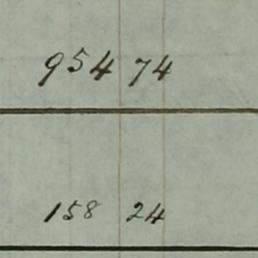 954 74
158 24